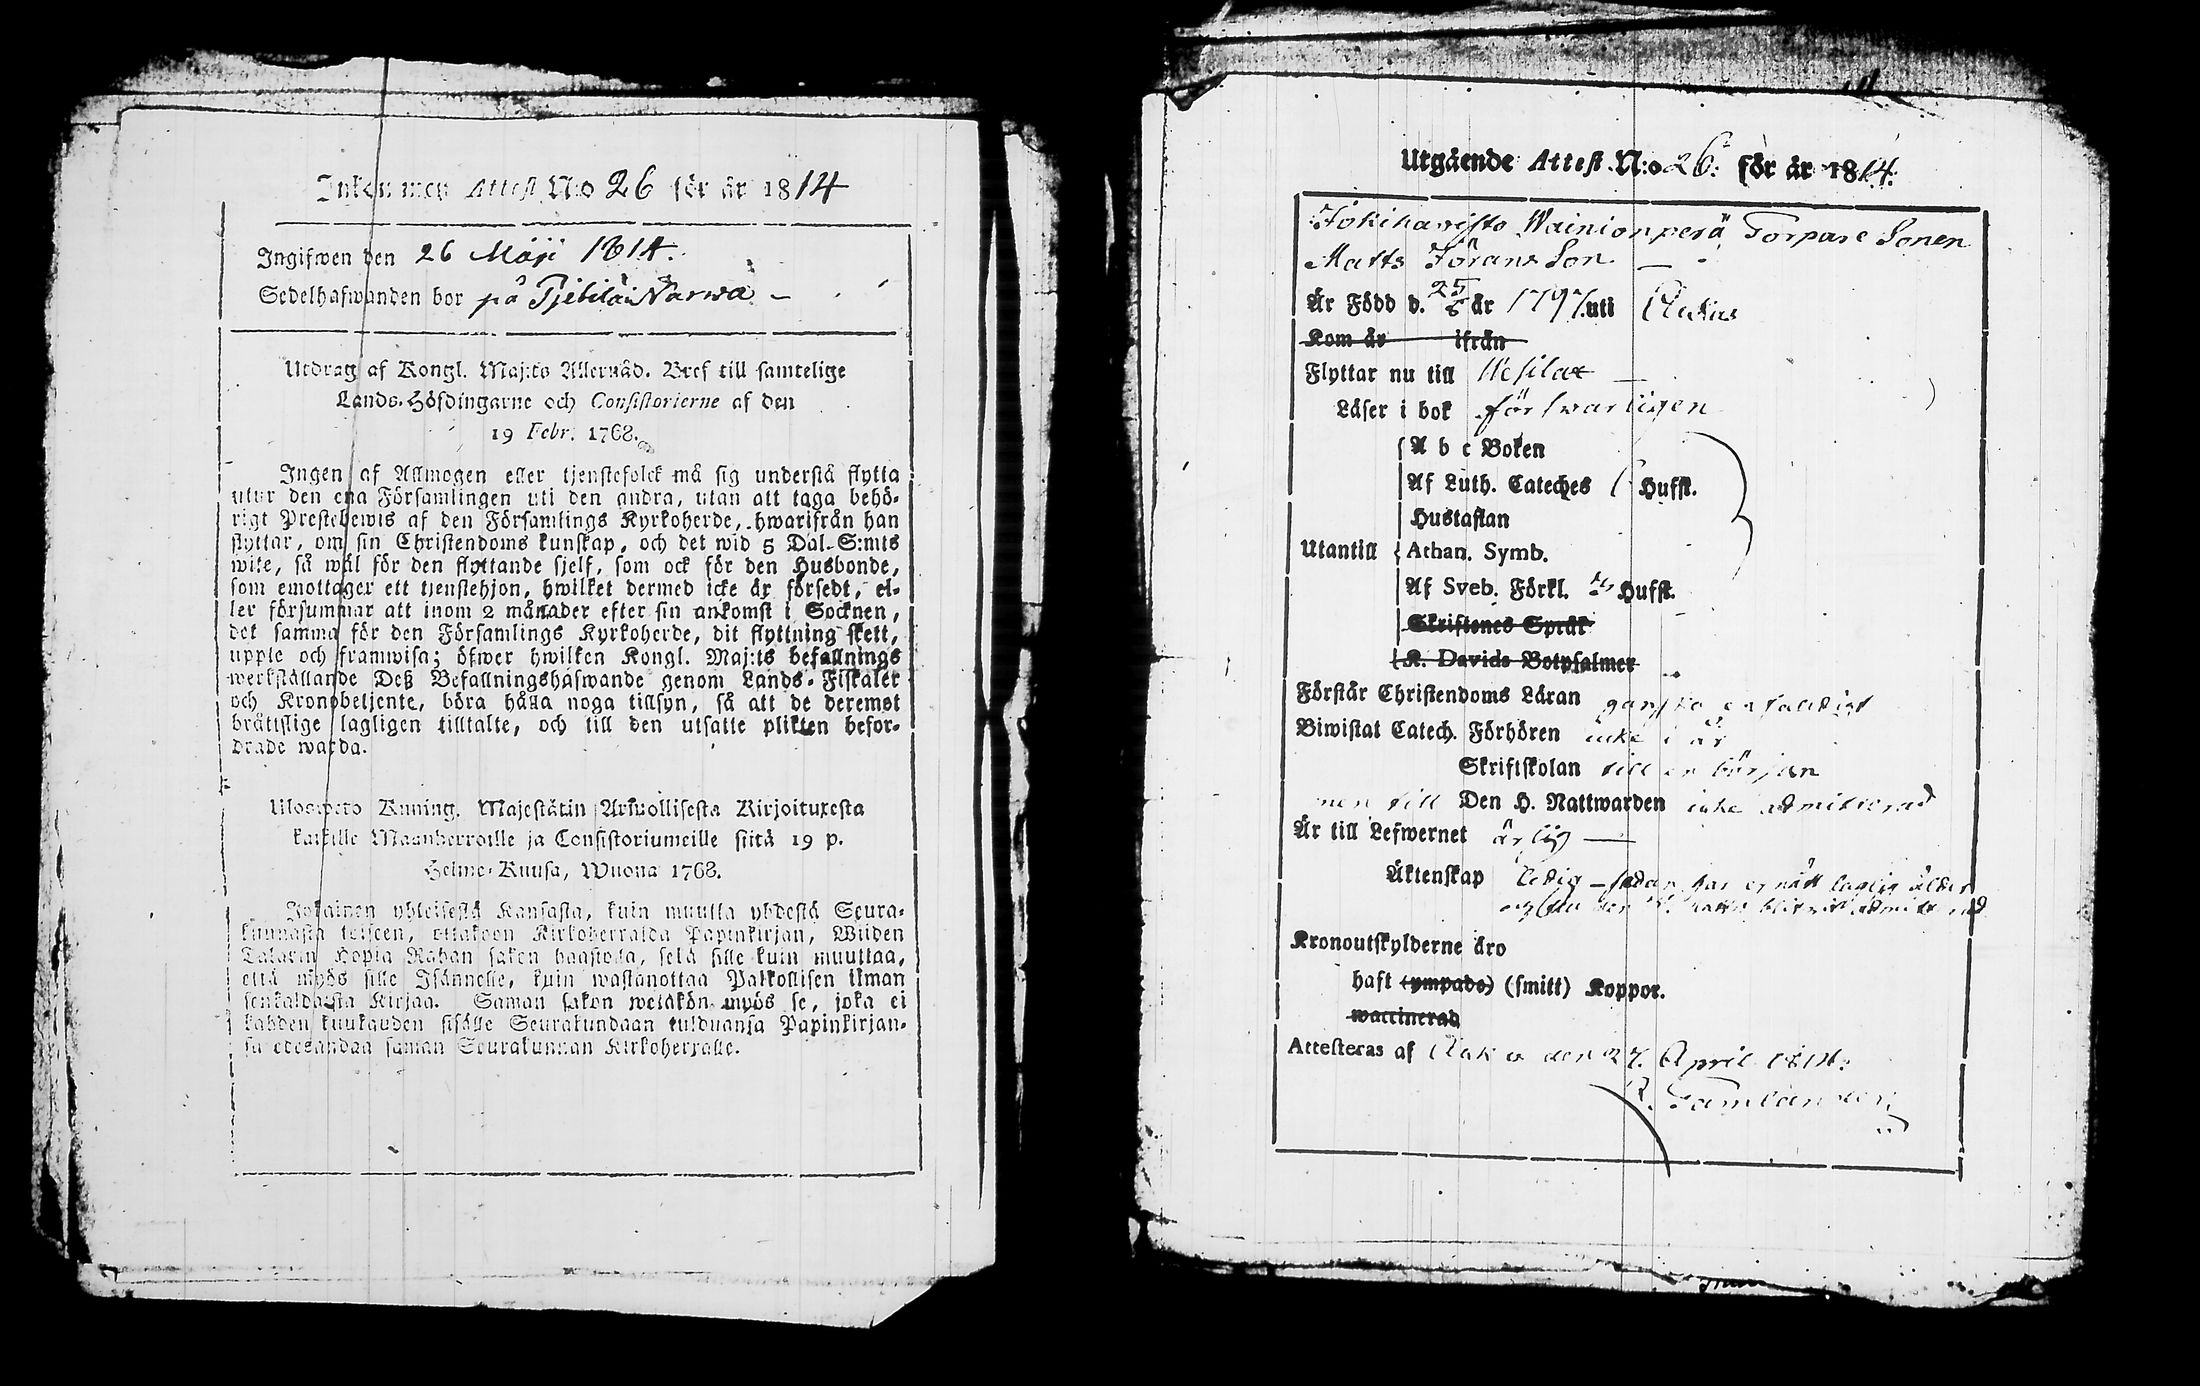 Inkommen Attest N:o 26 för år 1814
Ingifwen den 26 Maji 1814.
Sedelhafwanden bor på Tjebiläi Narwa –
Utdrag af Kongl. Maj:ts Allernåd. Bref till samtelige
Lands-Höfdingarne och Consistorierne af den
19 Febr. 1768.
Ingen af Allmogen eller tjenstefolck må sig understå flytta
utur den ena Församlingen uti den andra, utan att taga behö-
rigt Prestebewis af den Församlings Kyrkoherde, hwarifrån han
flyttar, om sin Christendoms kunskap, och det wid 5 Dal. S:mts
wite, så wäl för den flyttande sjelf, som ock för den Husbonde,
som emottager ett tjenstehjon, hwilket dermed icke är försedt, el-
ler försummar att inom 2 månader efter sin ankomst i Socknen,
det samma för den Församlings Kyrkoherde, dit flyttning skett,
uppte och framwisa; öfwer hwilken Kongl. Maj:ts befallnings
werkställande Deß Befallningshafwande genom Lands-Fiskaler
och Kronobetjente, böra hålla noga tillsyn, så att de deremot
bråttslige lagligen tilltalte, och till den utsatte plikten befor-
drade warda.
Ulosweto Kuning. Majestätin Arkwollisesta Kirjoituxesta
kaikille Maanherroille ja Consistoriumeille siitä 19 p.
Helme-Kuusa, Wuona 1768.
Jokainen yhteisestä Kansasta, kuin muutta yhdestä Seura-
kunnasta toiseen, ottakoon Kirkoherralda Papinkirjan, Wiiden
Talarin Hopia Rahan sakon haastolla, sekä sille kuin muuttaa,
että myös sille Isännelle, kuin wastanottaa Palkollisen ilman
senkaldaista Kirjaa. Saman sakon wetäkön myös se, joka ei
kahden kuukauden sisälle Seurakundaan tulduansa Papinkirjan-
sa edesandaa saman Seurakunnan Kirkoherralle.
Utgående Attest N:o 26: för år 1814:
Jokihavisto Wainionperä Torpare Sonen
Matts Jörans Son —
Är Född d. 25/6 år 1797. uti
Kom år ifrån
Flyttar nu till Wesilax —
Läser i bok förswarligen
A b c Boken
Af Luth. Cateches Hufst.
Hustaflan
Utantill Athan. Symb.
Af Sveb. Förkl. Hufst.
Skriftenes Språk
K. Davids Botpsalmer
Förstår Christendoms Läran ganska enfaldigt
Biwistat Catech. Förhören icke i år
Skriftskolan till en början
men till Den H. Nattwarden icke admitterad
Är till Lefwernet ärlig —
Äktenskap ledig – sedan har ej nått laglig ålder
Kronoutskylderne äro
haft (ympade) (smitt) Koppor.
waccinerad
Attesteras af den 27. April 1814: